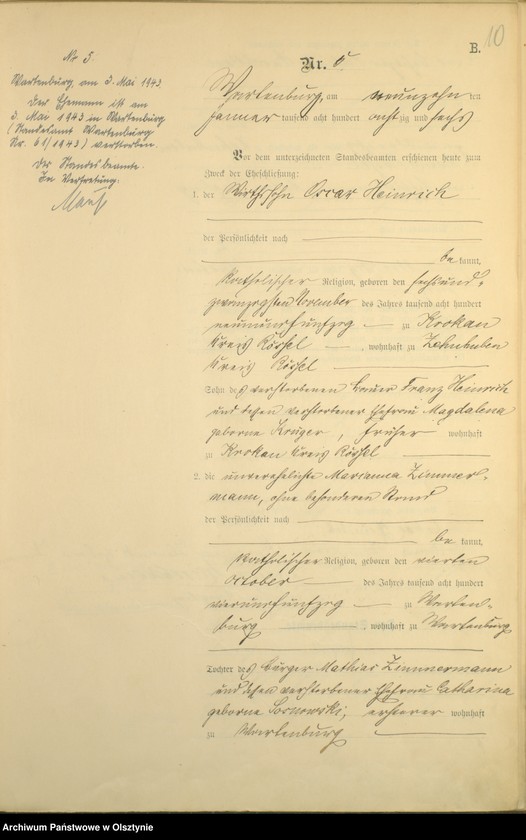 10
B.
Nr. 5.
Wartenburg, am 3. Mai 1943
Der Ehemann ist am
3. Mai 1943 in Wartenburg
(Standesamt Wartenburg
Nr. 61/1943) verstorben.
Der Standesbeamte.
In Vertretung:
Nr. 5
Wartenburg, am neunzehn ten
Januar tausend acht hundert achtzig und sechs
Vor dem unterzeichneten Standesbeamten erschienen heute zum
Zweck der Eheschließung:
1. der Wirthssohn Oscar Heinrich
der Persönlichkeit nach
be kannt,
katholischer Religion, geboren den sechsund-
zwanzigsten November des Jahres tausend acht hundert
neunundfünfzig zu Krokau
Kreis Rössel, wohnhaft zu
Kreis Rössel
Sohn des verstorbenen Franz Heinrich
und dessen verstorbener Ehefrau Magdalena
geborne Krüger, früher wohnhaft
zu Krokau Kreis Rössel
2. die unverehelichte Marianna Zimmer-
mann, ohne besonderen Stand
der Persönlichkeit nach
be kannt,
katholischer Religion, geboren den vierten
October des Jahres tausend acht hundert
vierundfünfzig zu Warten-
burg, wohnhaft zu Wartenburg
Tochter des Bürger Mathias Zimmermann
und dessen verstorbener Ehefrau Catharina
geborne Sosnowski, ersterer wohnhaft
zu Wartenburg
Archiwum Państwowe w Olsztynie